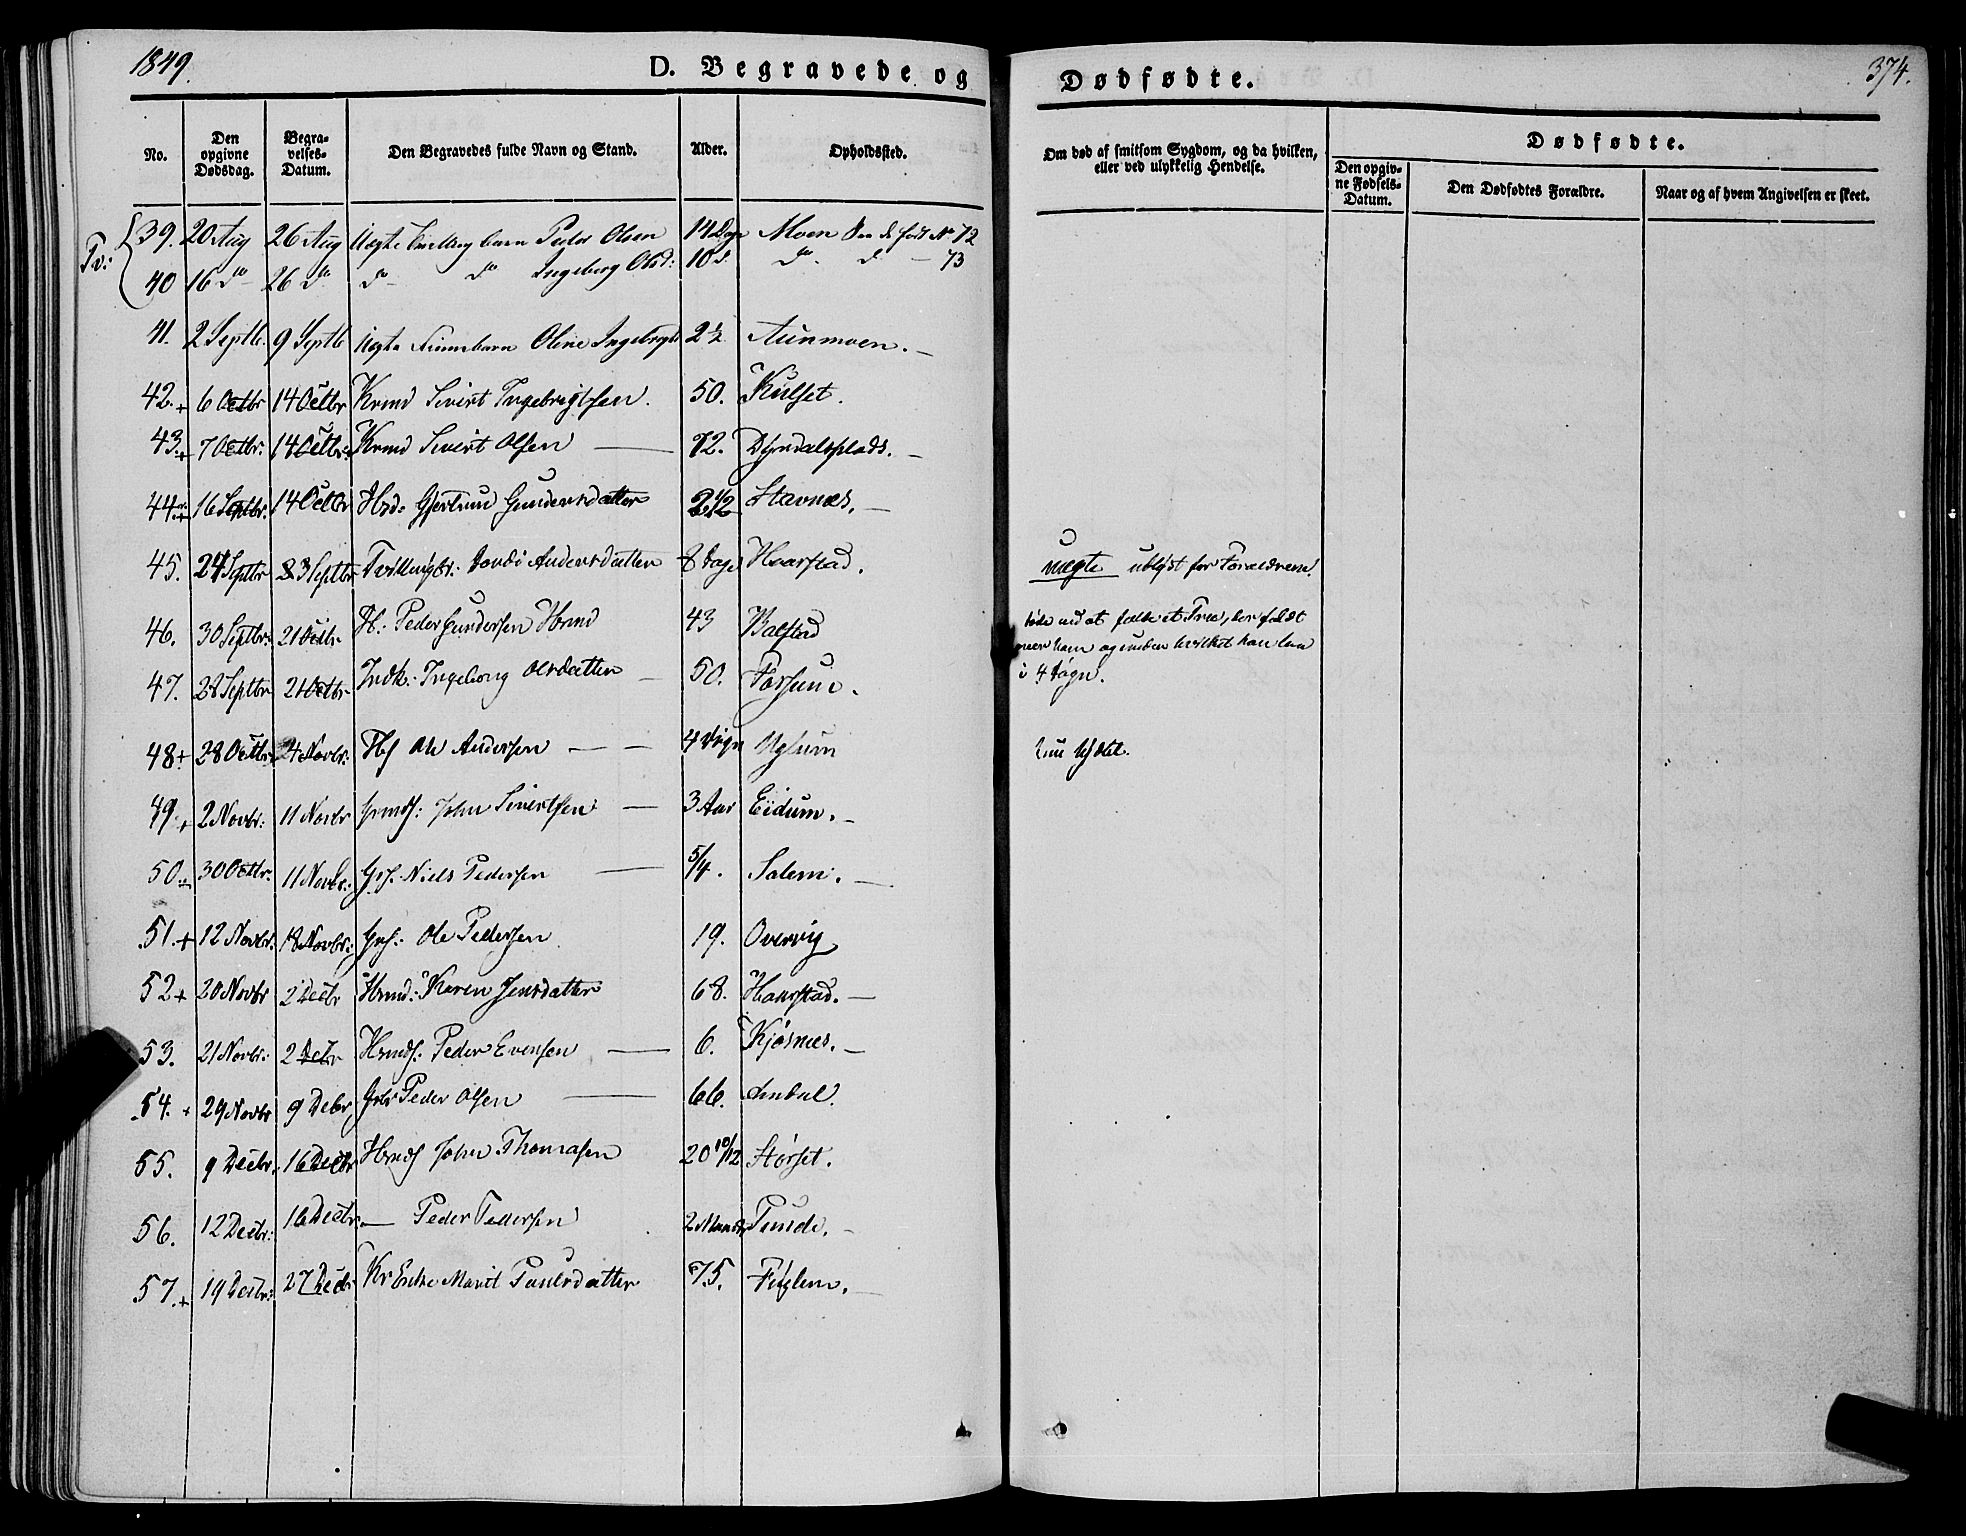 1849.
D. Begravede og Dødfødte.
374.
No.
Den opgivne Dødsdag.
Begra-velses-Datum.
Den Begravedes fulde Navn og Stand.
Alder.
Opholdssted.
Om død af smitsom Sygdom, og da hvilken, eller ved ulykkelig Hendelse.
Dødfødte.
Den opgiv-ne Fødsels-Datum.
Den Dødfødtes Forældre.
Naar og af hvem Angivelsen er skeet.
Tv:
39. 20 Aug 26 Aug Uægte Tvilling barn Peder Olsen 14 Dage Moen født No 72
40 16 do 26 do do do Ingeborg Olsd: 10 d. do d. — 73
41. 2 Septb. 9 Septb Uægte barn Oline Ingebrigtsd 2½ Aunmoen.
42. + 6 Octbr 14 Octbr Krmd Sivert Ingebrigtsen. 50. Kulset.
43. + 7 Octbr: 14 Octbr: Krmd Sivert Olsen 72. Dyrdalsplads.
44. 16 Septbr: 14 Octbr Hsd: Gjertrud Gundersdatter 2½ Stavnæs.
45. 24 Septbr 23 Septbr Tvillingb: Andersdatter 8 Dage Haarstad. uægte ubløst for Forældrene.
46. 30 Septbr: 21 Octbr H: Peder Gundersen Hsmd 43 Balstad ved at fælde et Træ, der faldt
over ham og under hvilket han laae
i 4 Døgn.
47. 28 Septbr 21 Octbr. Indk: Ingeborg Olsdatter 50. Fossum.
48 + 28 Octbr: 4 Novbr: Ole Andersen 4 Døgn Uglum hjdøbt.
49. + 2 Novbr: 11 Novbr John Sivertsen 3 Aar Eidum.
50. 30 Octbr: 11 Novbr: Grs: Niels Pedersen 5/4. Salem.
51. + 12 Novbr: 18 Novbr: Grs: Ole Pedersen 19. Overvig
52 + 20 Novbr 2 Decbr Hsmd: Karen Jensdatter 68. Haarstad.
53. 21 Novbr: 2 Decbr Hsmds: Peder Evensen 6. Kjøsnæs.
54. + 29 Novbr 9 Debr Peder Olsen 66.
55. 9 Decbr: 16 Decbr Hsmds John Thomasen 20 10/12 Størset.
56. 12 Decbr: 16 Decbr: — Peder Pedersen 2 Maaneder
57. + 19 Decbr: 27 Decbr Kr Enke Marit Paulsdatter 75. Fuglem.